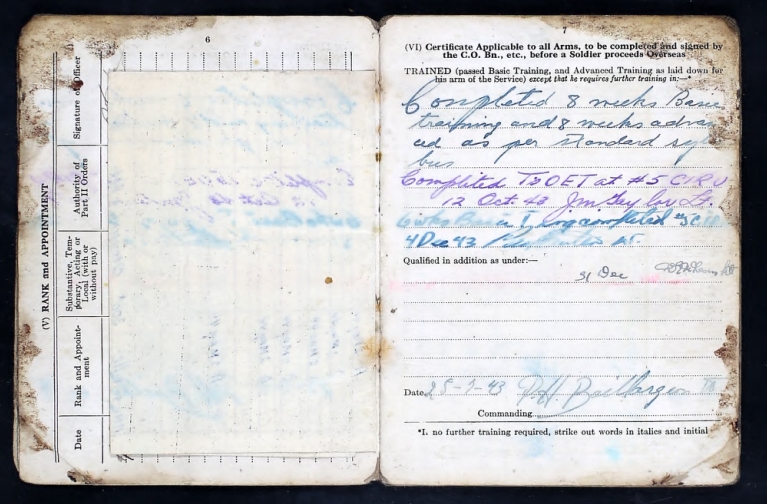 6
(V) RANK and APPOINTMENT
Signature of Officer
Authority of
Part II Orders
Substantive, Tem-
porary, Acting or
Local (with or
without pay)
Rank and Appoint-
ment
Date
7
(VI) Certificate Applicable to all Arms, to be completed and signed by
the C.O. Bn., etc., before a Soldier proceeds Overseas
TRAINED (passed Basic Training, and Advanced Training as laid down for
his arm of the Service) except that he requires further training in:—*
Completed 8 weeks Basic
training and 8 weeks advan
ced as per standard syl
bus
Completed TsOET at #5 CIRU
12 Oct 43 Lt.
completed
4 Dec 43
Qualified in addition as under:—
31 Dec
Date 43
Commanding
*I. no further training required, strike out words in italics and initial